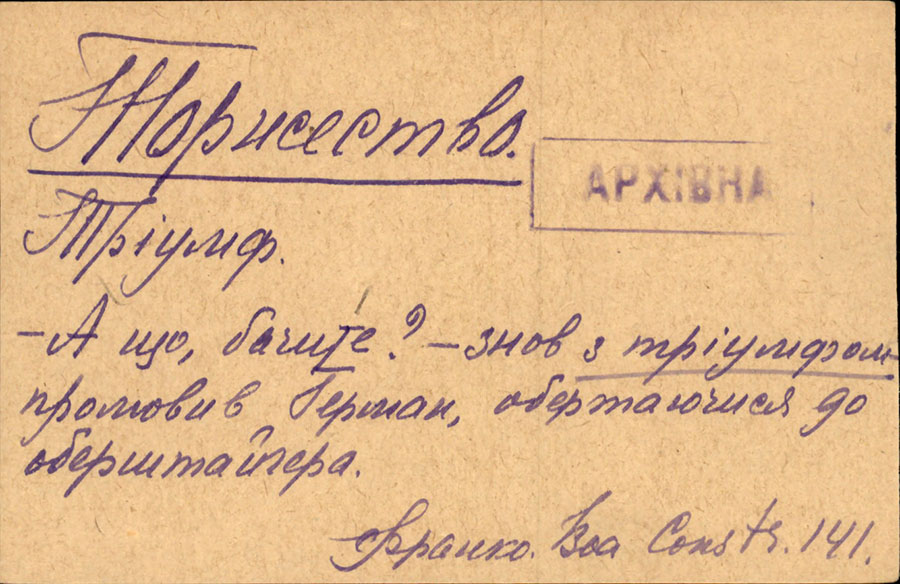 Торжество.
АРХІВНА
Тріумф.
– А що, бачите? – знов з тріумфом
промовив Герман, обертаючися до
оберштайгера.
Франко. Boa Constr. 141.